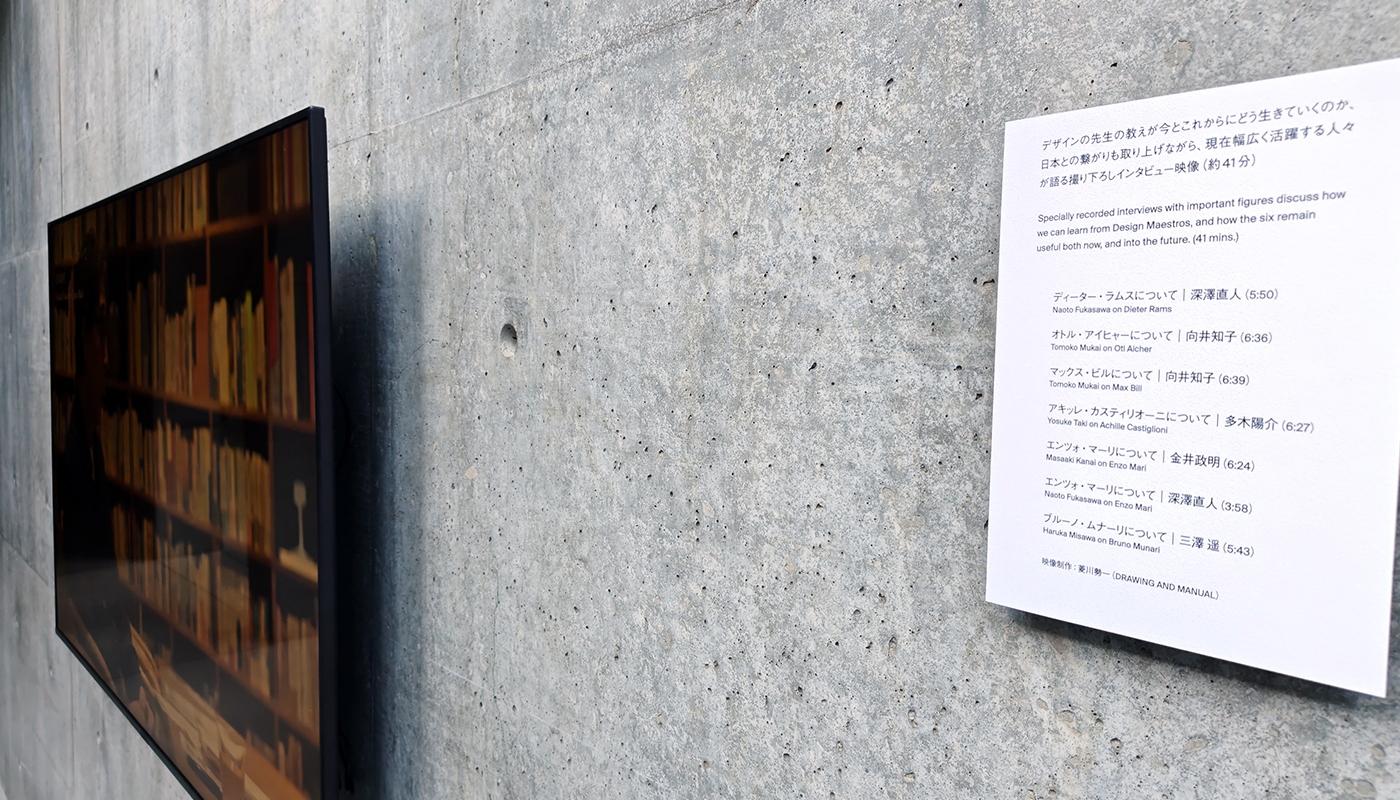 デザインの先生の教えが今とこれからにどう生きていくのか、
日本との繋がりも取り上げながら、現在幅広く活躍する人々
が語る撮り下ろしインタビュー映像（約41分）
Specially recorded interviews with important figures discuss how
we can learn from Design Maestros, and how the six remain
useful both now, and into the future. (41 mins.)
ディーター・ラムスについて｜深澤直人（5:50）
Naoto Fukasawa on Dieter Rams
オトル・アイヒャーについて｜向井知子（6:36）
Tomoko Mukai on Otl Aicher
マックス・ビルについて｜向井知子（6:39）
Tomoko Mukai on Max Bill
アキッレ・カスティリオーニについて｜多木陽介（6:27）
Yosuke Taki on Achille Castiglioni
エンツォ・マーリについて｜金井政明（6:24）
Masaaki Kanai on Enzo Mari
エンツォ・マーリについて｜深澤直人（3:58）
Naoto Fukasawa on Enzo Mari
ブルーノ・ムナーリについて｜三澤 遥（5:43）
Haruka Misawa on Bruno Munari
映像制作：菱川勢一（DRAWING AND MANUAL）